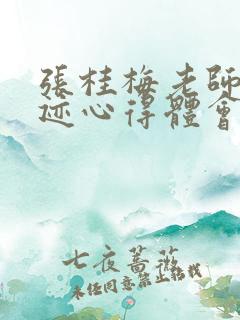 張桂梅老師
迹心得體會
七夜蔷薇
未经同意禁止转载